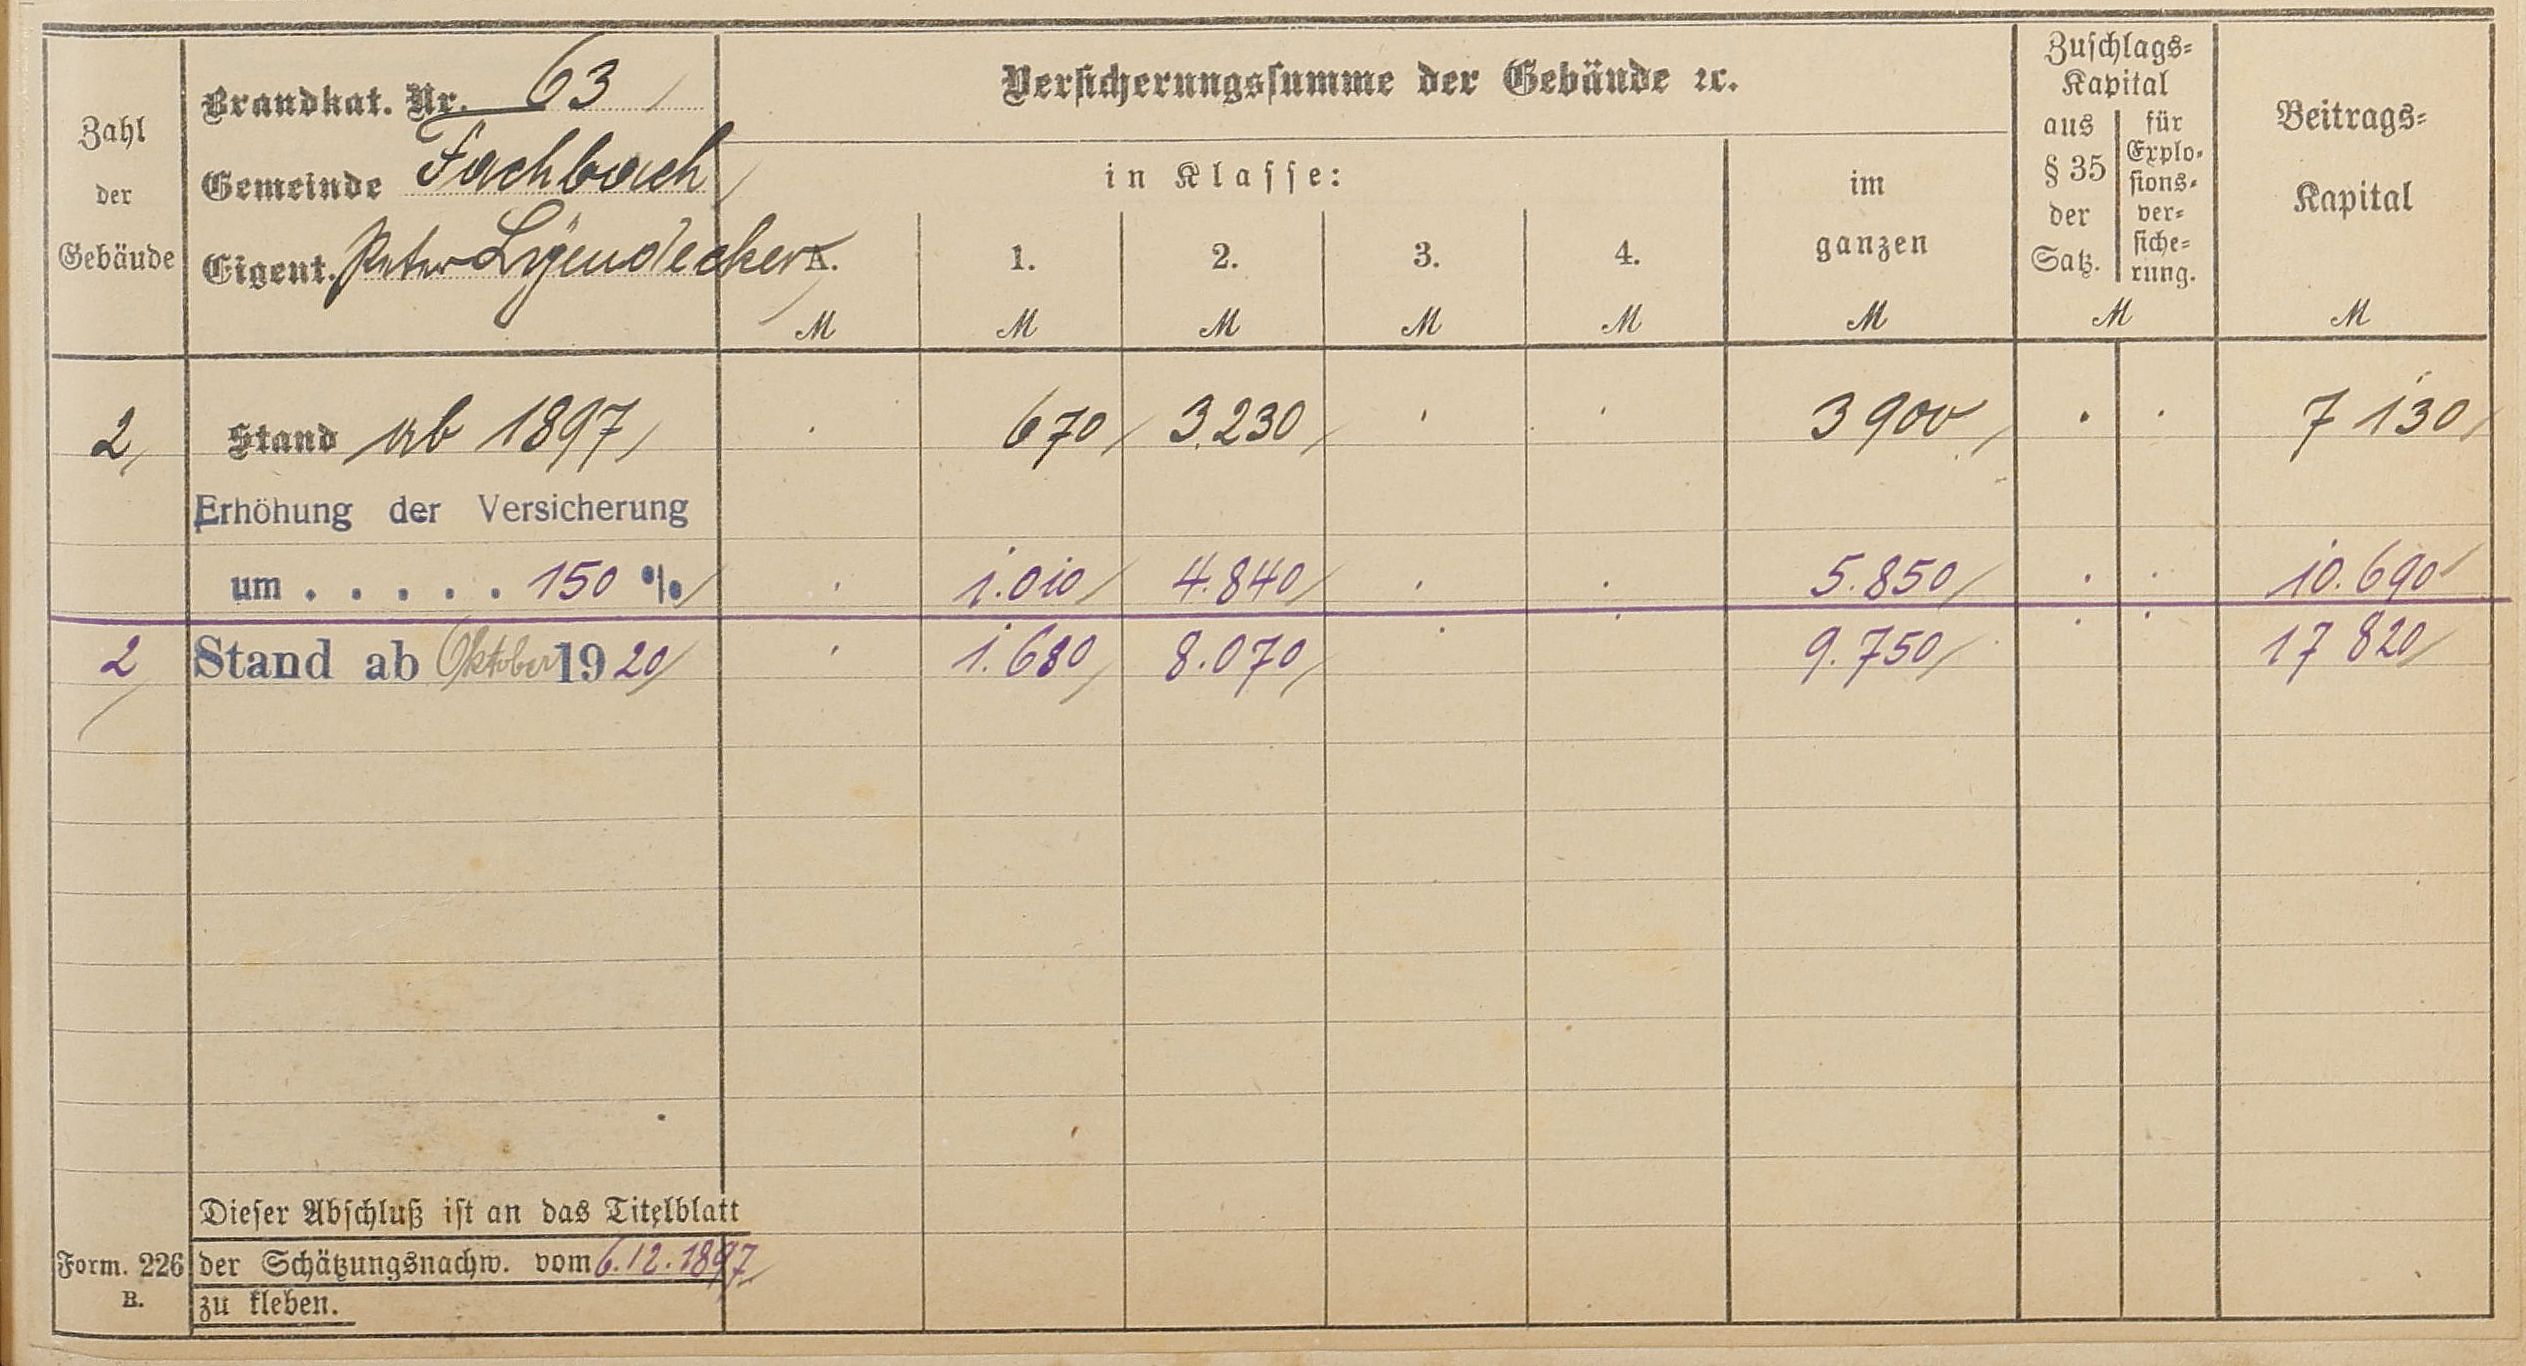 Zahl der Gebäude
Brandkat. Nr. 63
Gemeinde Fachbach
Eigent. Peter
Versicherungssumme der Gebäude ꝛc.
in Klasse:
A. 1. 2. 3. 4.
im ganzen
Zuschlags-
Kapital
aus § 35 der Satz.
für Explo-
sions-
ver-
siche-
rung.
Beitrags-
Kapital
M M M M M M M M
2 Stand ab 1897 . 670 3.230 . . 3 900 . . 7 130
Erhöhung der Versicherung
um . . . . . 150 % . 1.010 4.840 . . 5.850 . . 10.690
2 Stand ab Oktober 1920 . 1.680 8.070 . . 9.750 . . 17 820
Dieser Abschluß ist an das Titelblatt
Form. 226 der Schätzungsnachw. vom 6.12.1897
B. zu kleben.